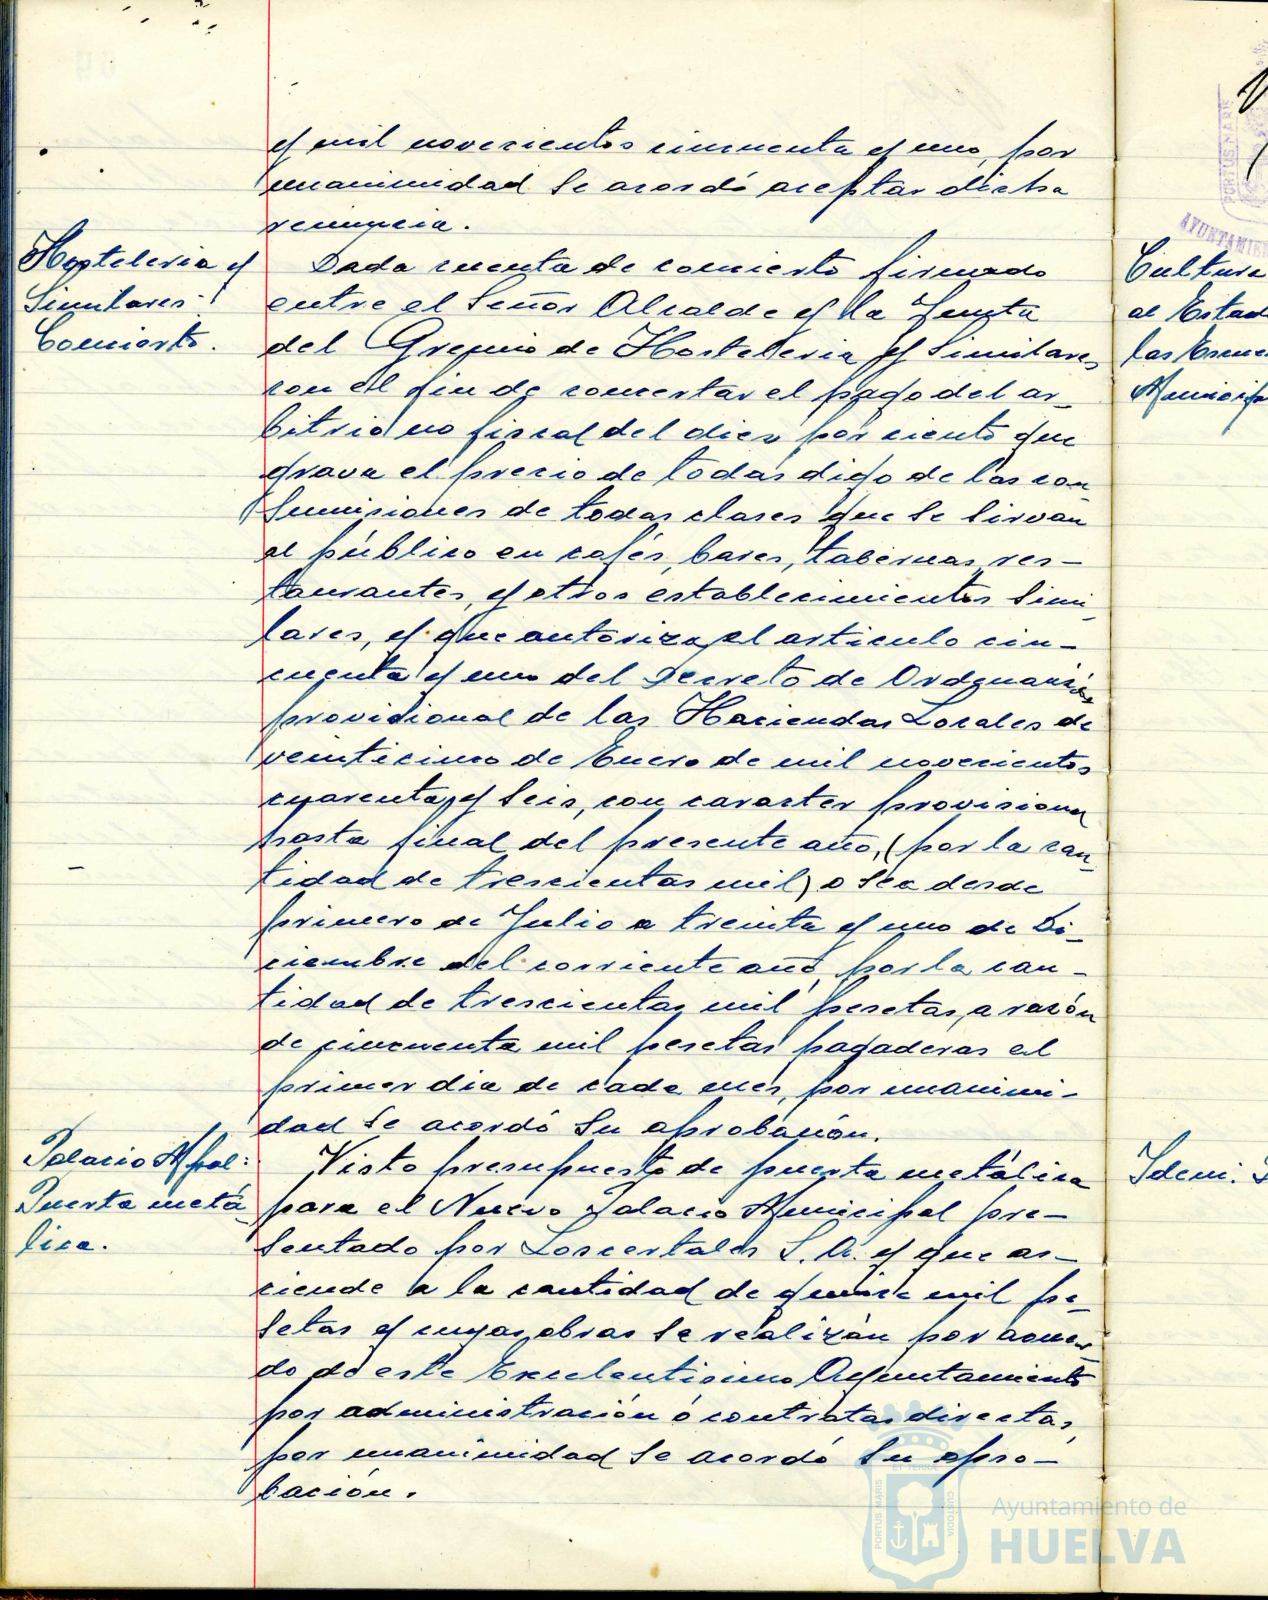 y mil novecientos cincuenta y uno, por
unanimidad se acordó aceptar dicha
renuncia.
Hosteleria y
Similares:
Concierto.
Dada cuenta de concierto firmado
entre el Señor Alcalde y la Junta
del Gremio de Hosteleria y Similares
con el fin de concertar el pago del ar-
bitrio no fiscal del diez por ciento que
grava el precio de todas digo de las con-
sumisiones de todas clases que se sirvan
al público en cafés, bares, tabernas, res-
taurantes, y otros establecimientos simi-
lares, y que autoriza el articulo cin-
cuenta y uno del Decreto de Ordenación
provisional de las Haciendas Locales de
veinticinco de Enero de mil novecientos
cuarenta y seis, con caracter provisional
hasta final del presente año, (por la can-
tidad de trescientas mil) o sea desde
primero de Julio a treinta y uno de Di-
ciembre del corriente año, por la can-
tidad de trescientas mil pesetas, a razón
de cincuenta mil pesetas pagaderas el
primer dia de cada mes, por unanimi-
dad se acordó su aprobación.
Palacio Mpal:
Puerta metá-
lica.
Visto presupuesto de puerta metálica
para el Nuevo Palacio Municipal pre-
sentado por Loscertales S.A. y que as-
ciende a la cantidad de quince mil pe-
setas y cuyas obras se realizán por acuer-
do de este Excelentisimo Ayuntamiento
por administración ó contratas directas,
por unanimidad se acordó su apro-
bación.
Cultura
al Estad
las Escue
Municip
Idem:
PORTUS MARIS
AYUNTAMIE
PORTUS MARIS
ET TERRÆ
CUSTODIA
Ayuntamiento de
HUELVA